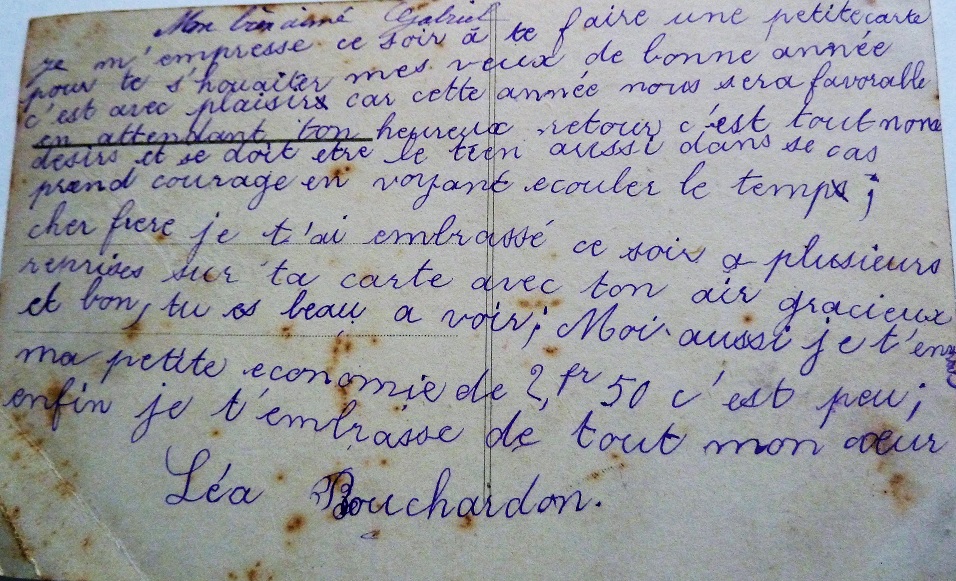 Mon bien aimé Gabriel
je m'empresse ce soir à te faire une petite carte
pour te s'houaiter mes veux de bonne année
c'est avec plaisir car cette année nous sera favorable
en attendant ton heureux retour c'est tout nons
desirs et se doit etre le tien aussi dans se cas
prend courage en voyant ecouler le temps ;
cher frere je t'ai embrassé ce soir a plusieurs
reprises sur ta carte avec ton air gracieux
et bon, tu es beau a voir ; Moi aussi je t'envoi
ma petite economie de 2,fr 50 c'est peu ;
enfin je t'embrasse de tout mon cœur
Léa Bouchardon.